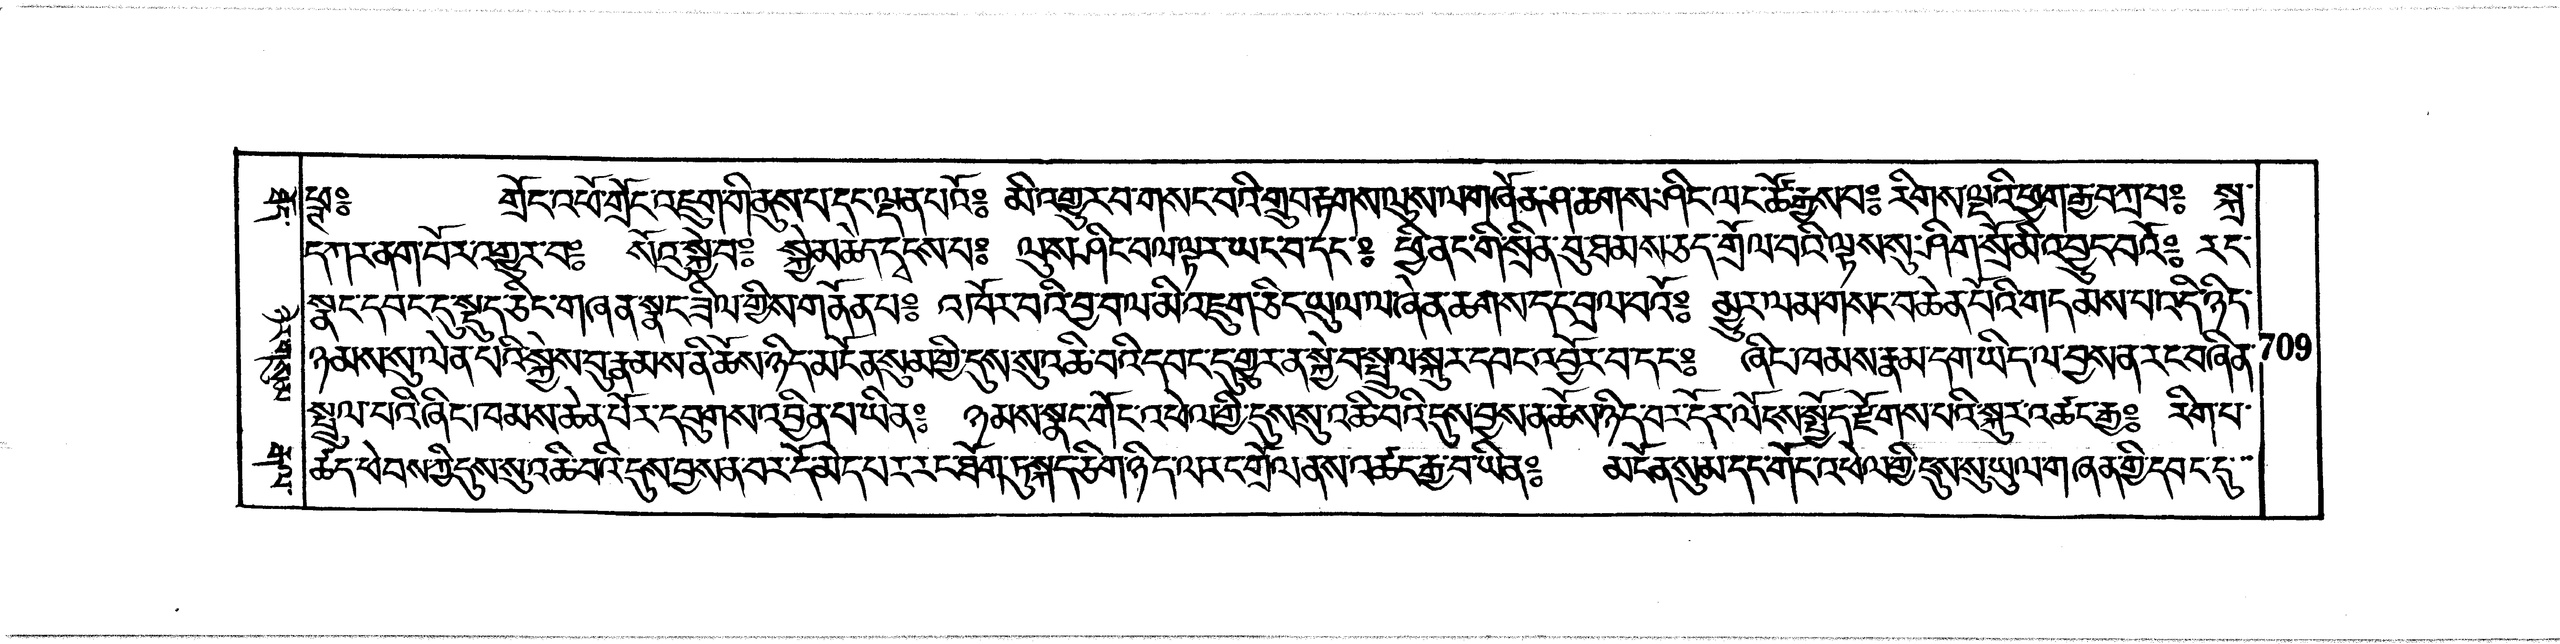 གྲོང་འཕོ་གྲོང་འཇུག་གི་ནུས་པ་དང་ལྡན་པའོ༔ མི་འགྱུར་བ་གསང་བའི་གྲུབ་རྟགས་ལུས་ལ་གཞོན་ཤ་ཆགས་ཤིང་ལང་ཚོ་རྒྱས་པ༔ རིགས་ལྔའི་ཕྱག་རྒྱ་བཀྲ་བ༔ སྐྲ་
དཀར་ནག་པོར་འགྱུར་བ༔ སོ་འུ་སྐྱེ་བ༔ སྐྱེ་མཆེད་དྭངས་པ༔ ལུས་ཤིང་བལ་ལྟར་ཡང་བ་དང་༔ ཕྱི་ནང་གི་སྲིན་བུ་ཐམས་ཅད་གྲོལ་བའི་ལྟས་སུ་ཤིག་སྲོ་མི་འབྱུང་བའོ༔ རང་
སྣང་དབང་དུ་སྡུད་ཅིང་གཞན་སྣང་ཟིལ་གྱིས་གནོན་པ༔ འཁོར་བའི་བྱ་བ་ལ་མི་འཇུག་ཅིང་ཡུལ་ལ་ཞེན་ཆགས་དང་བྲལ་བའོ༔ མྱུར་ལམ་གསང་བ་ཆེན་པོའི་གདམས་པ་འདི་ཉིད་
ཉམས་སུ་ལེན་པའི་སྐྱེས་བུ་རྣམས་ནི་ཆོས་ཉིད་མངོན་སུམ་གྱི་དུས་སུ་འཆི་བའི་དབང་དུ་གྱུར་ན་སྐྱེ་བ་སྤྲུལ་སྐུར་དབང་འབྱོར་བ་དང་༔ ཞིང་ཁམས་རྣམ་དག་ཡིད་ལ་བྱས་ན་རང་བཞིན་
709
སྤྲུལ་པའི་ཞིང་ཁམས་ཆེན་པོར་དབུགས་འབྱིན་པ་ཡིན༔ ཉམས་སྣང་གོང་འཕེལ་གྱི་དུས་སུ་འཆི་བའི་དུས་བྱས་ན་ཆོས་ཉིད་བར་དོར་ལོངས་སྤྱོད་རྫོགས་པའི་སྐུར་འཚང་རྒྱ༔ རིག་པ་
ཚད་ཕེབས་ཀྱི་དུས་སུ་འཆི་བའི་དུས་བྱས་ན་བར་དོ་མེད་པར་རང་ཐོག་ཏུ་སྐད་ཅིག་ཉིད་ལ་རང་གྲོལ་ནས་འཚང་རྒྱ་བ་ཡིན༔ མངོན་སུམ་དང་གོང་འཕེལ་གྱི་དུས་སུ་ཡུལ་གཞན་གྱི་དབང་དུ་